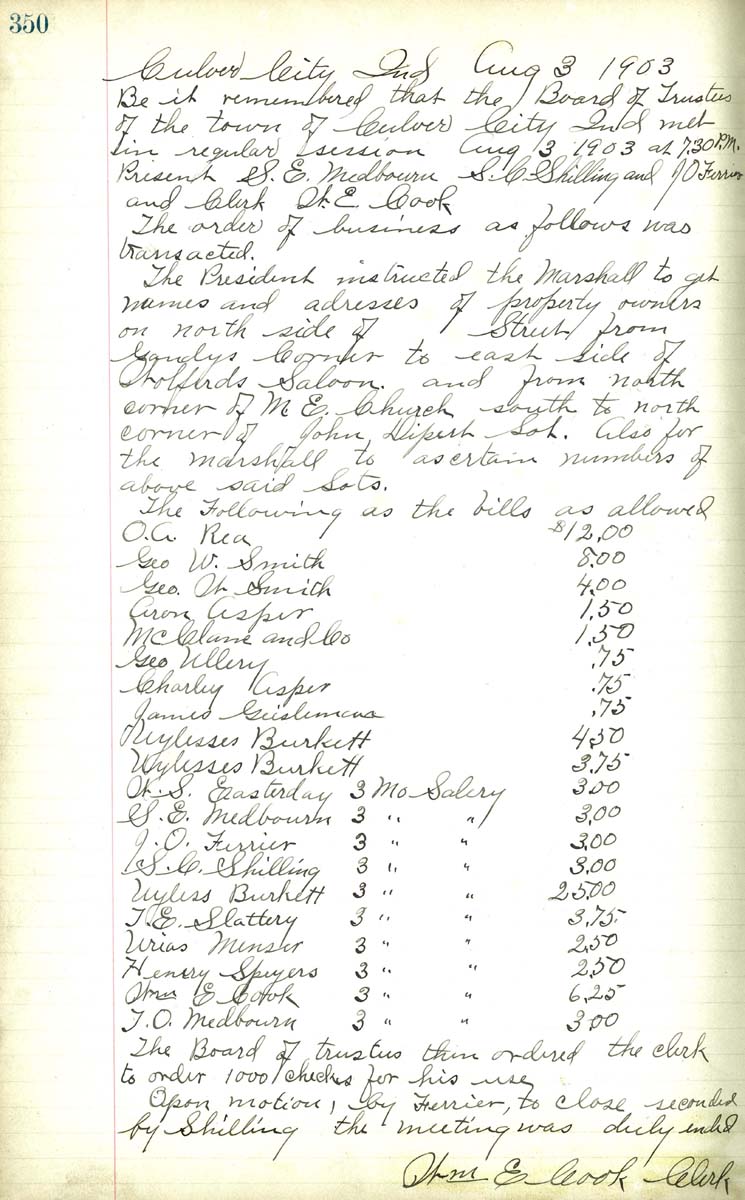 350
Culver City Ind Aug 3 1903
Be it remembered that the Board of Trustees
of the town of Culver City Ind met
in regular session Aug 3 1903 at 7.30 P.M.
Present S. E. Medbourn S. C. Shilling and J O Ferrier
and Clerk W. E. Cook
The order of business as follows was
transacted.
The President instructed the Marshall to get
names and adresses of property owners
on north side of Street from
Gandys Corner to east side of
Wolferds Saloon. and from north
corner of M E. Church south to north
corner of John Dipert Lot. Also for
the marshall to ascertain numbers of
above said Lots.
The Following as the bills as allowed
O.A. Rea $12.00
Geo W. Smith 8.00
Geo. W Smith 4.00
Aron Asper 1.50
McClane and Co 1.50
Geo Ullery .75
Charley Asper .75
James .75
Uylesses Burkett 4.50
Uylesses Burkett 3.75
W. S. Easterday 3 Mo Salery 3.00
S. E. Medbourn 3 " " 3.00
J. O. Ferrier 3 " " 3.00
S. C. Shilling 3 " " 3.00
Uyless Burkett 3 " " 25.00
T. E. Slattery 3 " " 3.75
Urias Menser 3 " " 2.50
Henry Speyers 3 " " 2.50
Wm E Cook 3 " " 6.25
T. O. Medbourn 3 " " 3.00
The Board of trustees then ordered the clerk
to order 1000 checks for his use
Upon motion, by Ferrier, to close seconded
by Shilling the meeting was duly ended
Wm E Cook Clerk